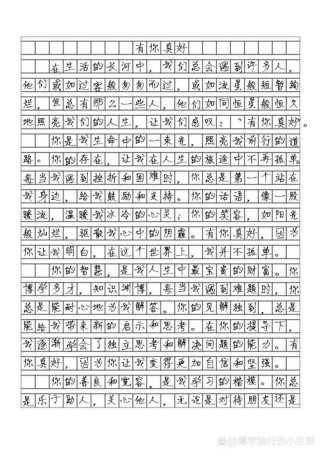 有你真好
在生活的长河中，我们总会遇到许多人，
他们或如过客般匆匆而过，或如流星般短暂绚
烂，但总有那么一些人，他们如同恒星般恒久
地照亮我们的人生，让我们感叹：“有你真好。
你是我生命中的一束光，照亮我前行的道
路。你的存在，让我在人生的旅途中不再孤单。
每当我遇到挫折和困难时，你总是第一个站在
我身边，给我鼓励和支持。你的话语，像一股
暖流，温暖我冰冷的心灵；你的笑容，如阳光
般灿烂，驱散我心中的阴霾。有你真好，因为
你让我明白，在这个世界上，我并不孤单。
你的智慧，是我人生中最宝贵的财富。你
博学多才，知识渊博，每当我遇到难题时，你
总是能耐心地为我解答。你的见解独到，总是
能给我带来新的启示和思考。在你的指导下，
我逐渐学会了独立思考和解决问题的能力。有
你真好，因为你让我变得更加自信和坚强。
你的善良和宽容，是我学习的楷模。你总
是乐于助人，关心他人，无论是对待朋友还是